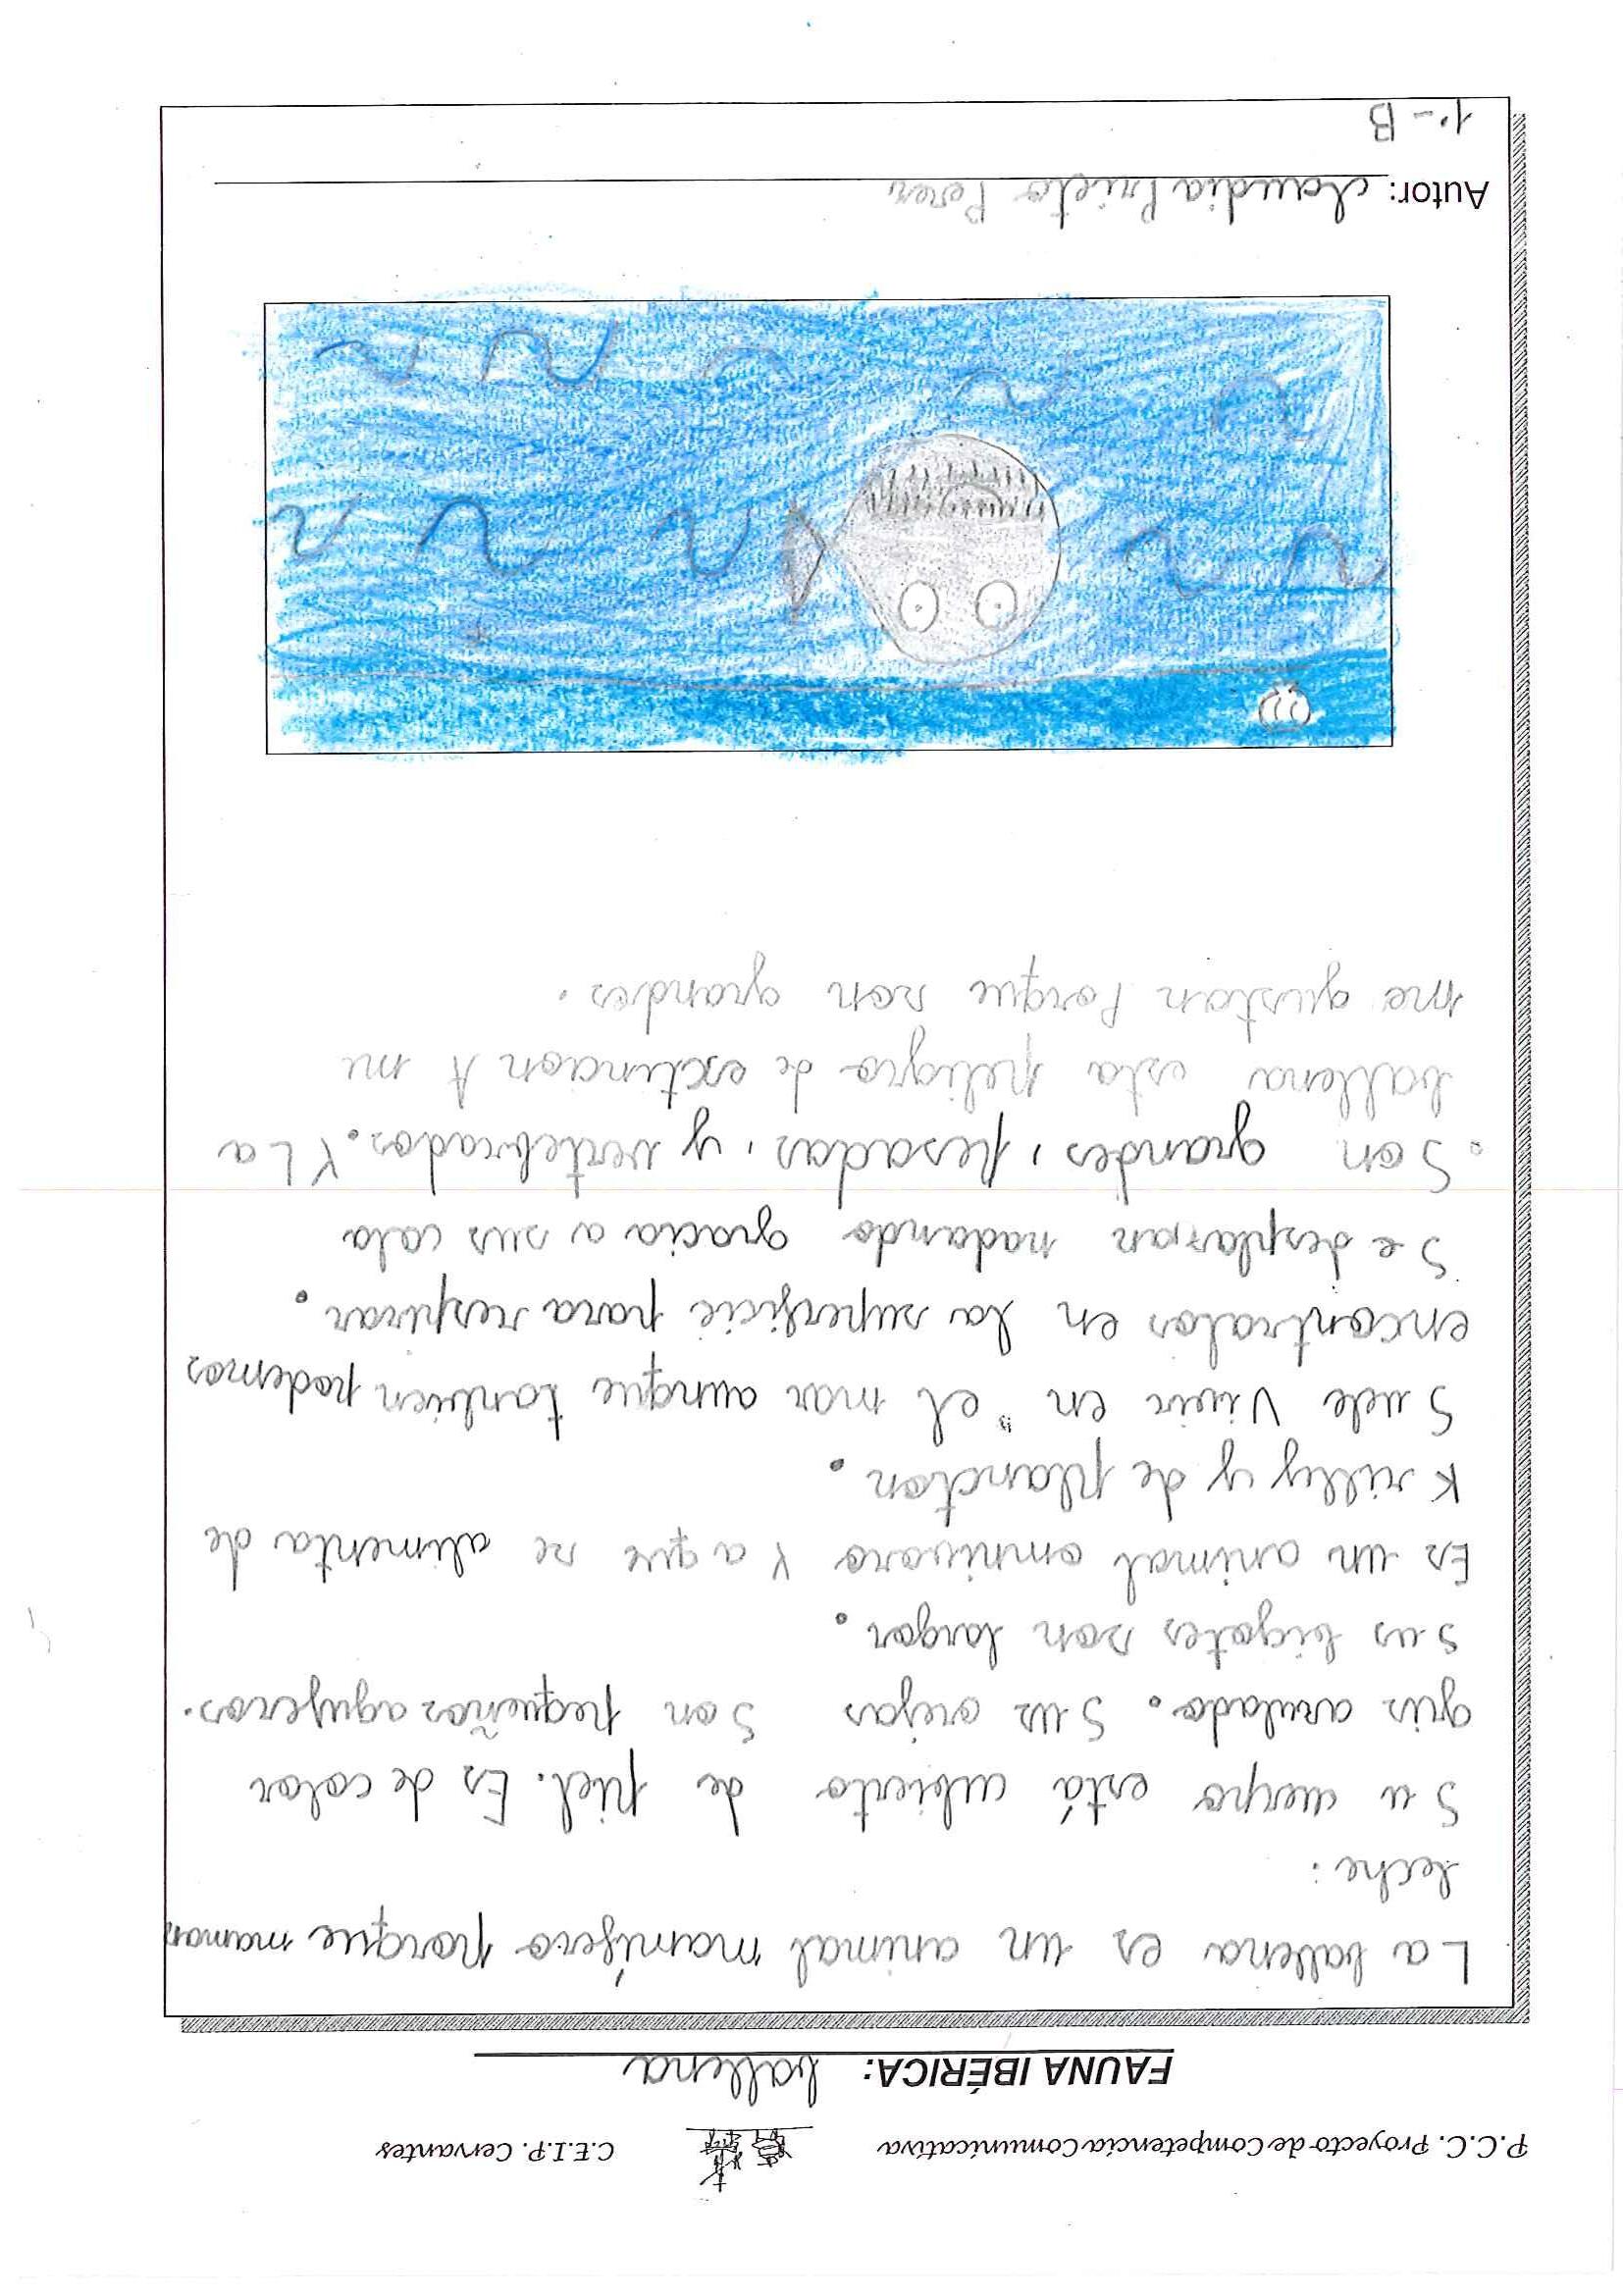 P.C.C. Proyecto de Competencia Comunicativa C.E.I.P. Cervantes
FAUNA IBÉRICA: ballena
La ballena es un animal mamífero porque maman
leche.
Su cuerpo está cubierto de piel. Es de color
gris azulado. Sus orejas son pequeños agujeros.
Sus bigotes son largos.
Es un animal omnivoro Ya que se alimenta de
Krilly y de plancton.
Suele Vivir en el mar aunque tanbien podemos
encontralos en la superficie para respirar.
Se desplazan nadando gracia a sus cola
Son grandes, pesadas, y vertebrados. Y La
ballena esta peligro de extincion A mi
me gustan Porque son grandes.
Autor: claudia Prieto Perez
1º-B